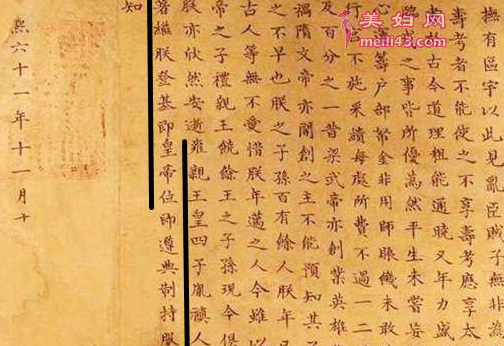 美妇网
meili43.com
撫有區宇以此見亂臣賊子無非為
壽考者不能使之不享壽考應享太
故古今道理粗能通曉又年力盛
之事皆所優為然平生未嘗妄
心籌戶部帑金非用師賑饑未敢
行宮不施采繢每處所費不過一二
及百分之一昔梁武帝亦創業英雄
禍隋文帝亦開創之主不能預知其
之不早也朕之子孫百有餘人朕年
古人等無不愛惜朕年邁之人今雖以
帝之子禮親王饒餘王之子孫現今俱
朕亦欣然安逝雍親王皇四子胤禛人
著繼朕登基即皇帝位即遵典制持服
知
熙六十一年十一月十